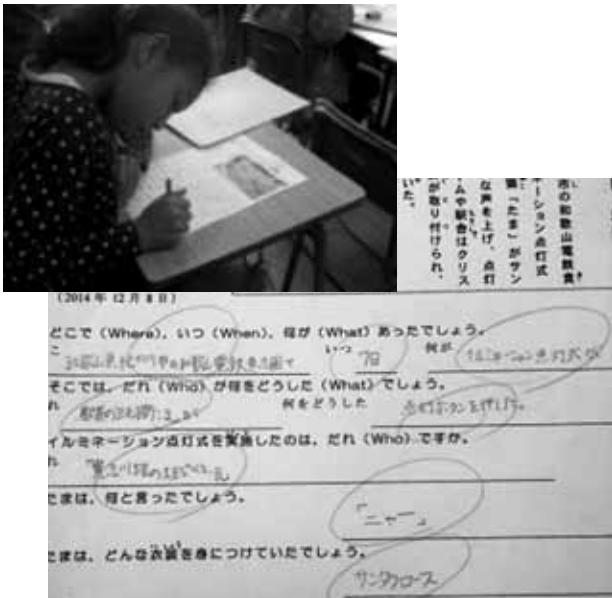 市の和歌山電鉄貴
ネーション点灯式
「たま」がサン
な声を上げ、点灯
ムや駅舎はクリス
が取り付けられ、
いた。
(2014年12月8日)
どこで(Where)、いつ(When)、何が(What)あったでしょう。
いつ 7日 何が イルミネーション点灯式が
そこでは、だれ(Who)が何をどうした(What)でしょう。
何をどうした 点灯ボタンを押した。
イルミネーション点灯式を実施したのは、だれ(Who)ですか。
たまは、何と言ったでしょう。
「ニャー」
たまは、どんな衣装を身につけていたでしょう。
サンタクロース